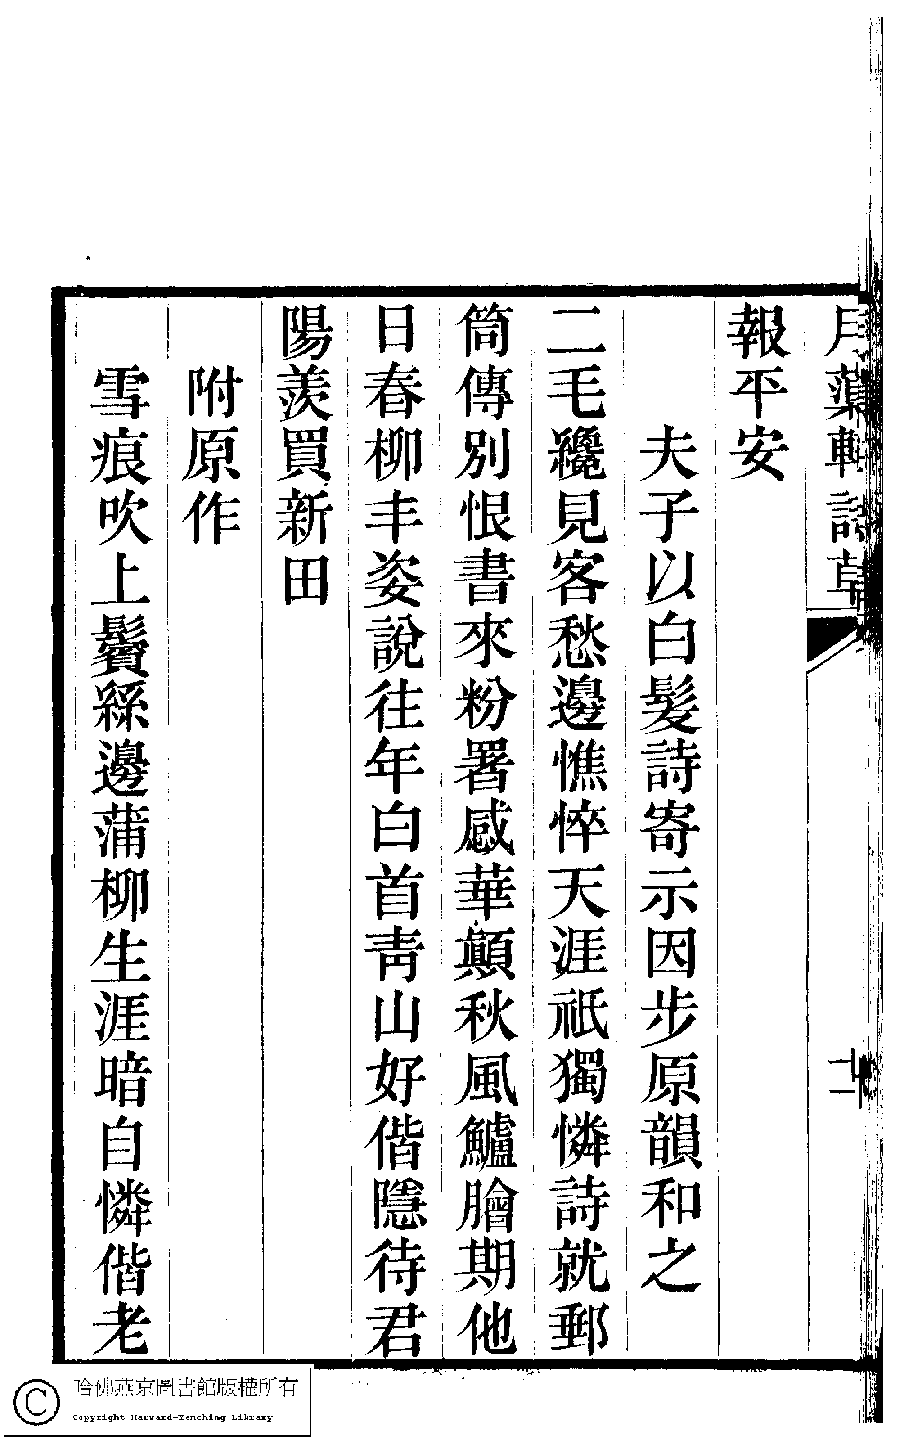 月蕖軒詩草
報平安
夫子以白髮詩寄示因步原韻和之
二毛纔見客愁邊憔悴天涯祇獨憐詩就郵
筒傳別恨書來粉署感華顛秋風鱸膾期他
日春柳丰姿說往年白首靑山好偕隱待君
陽羨買新田
附原作
雪痕吹上鬢絲邊蒲柳生涯暗自憐偕老
十一
哈佛燕京圖書館版權所有
Copyright Harvard-Yenching Library